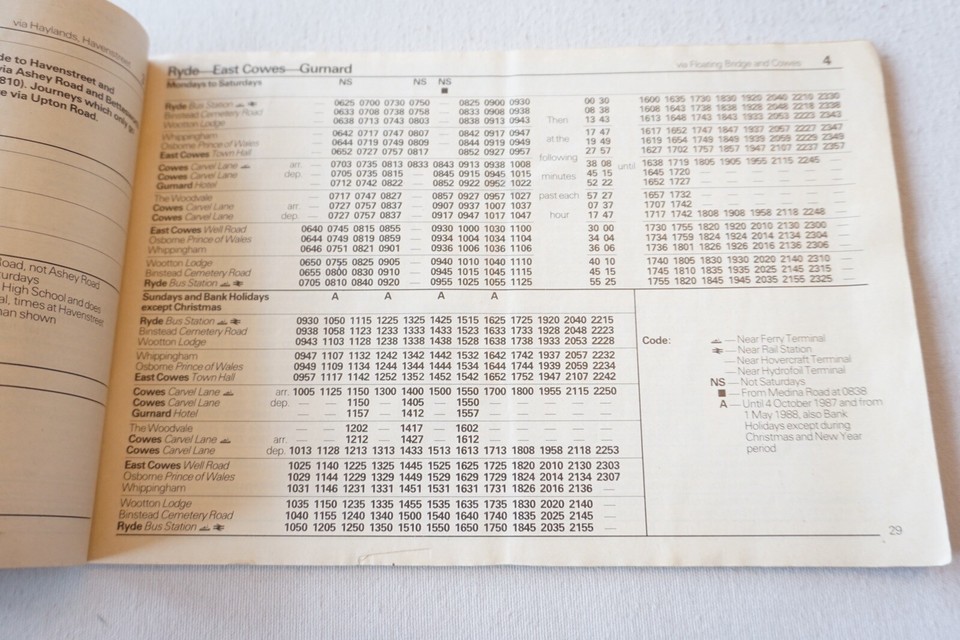 via Haylands, Havenstreet
de to Havenstreet and
via Ashey Road and
810). Journeys which only
e via Upton Road.
Road, not Ashey Road
turdays
High School and does
al, times at Havenstreet
han shown
Ryde—East Cowes—Gurnard via Floating Bridge and Cowes 4
Mondays to Saturdays NS NS NS
■
Ryde Bus Station — 0625 0700 0730 0750 — 0825 0900 0930 00 30 1600 1635 1730 1830 1920 2040 2210 2330
Binstead Cemetery Road — 0633 0708 0738 0758 — 0833 0908 0938 08 38 1608 1643 1738 1838 1928 2048 2218 2338
Wootton Lodge — 0638 0713 0743 0803 — 0838 0913 0943 Then 13 43 1613 1648 1743 1843 1933 2053 2223 2343
Whippingham — 0642 0717 0747 0807 — 0842 0917 0947 17 47 1617 1652 1747 1847 1937 2057 2227 2347
Osborne Prince of Wales — 0644 0719 0749 0809 — 0844 0919 0949 at the 19 49 1619 1654 1749 1849 1939 2059 2229 2349
East Cowes Town Hall — 0652 0727 0757 0817 — 0852 0927 0957 27 57 1627 1702 1757 1857 1947 2107 2237 2357
following
Cowes Carvel Lane arr. — 0703 0735 0813 0833 0843 0913 0938 1008 38 08 until 1638 1719 1805 1905 1955 2115 2245 —
Cowes Carvel Lane dep. — 0705 0735 0815 — 0845 0915 0945 1015 minutes 45 15 1645 1720 — — — — — —
Gurnard Hotel — 0712 0742 0822 — 0852 0922 0952 1022 52 22 1652 1727 — — — — — —
The Woodvale — 0717 0747 0827 — 0857 0927 0957 1027 past each 57 27 1657 1732 — — — — — —
Cowes Carvel Lane arr. — 0727 0757 0837 — 0907 0937 1007 1037 07 37 1707 1742 — — — — — —
Cowes Carvel Lane dep. — 0727 0757 0837 — 0917 0947 1017 1047 hour 17 47 1717 1742 1808 1908 1958 2118 2248 —
East Cowes Well Road 0640 0745 0815 0855 — 0930 1000 1030 1100 30 00 1730 1755 1820 1920 2010 2130 2300 —
Osborne Prince of Wales 0644 0749 0819 0859 — 0934 1004 1034 1104 34 04 1734 1759 1824 1924 2014 2134 2304 —
Whippingham 0646 0751 0821 0901 — 0936 1006 1036 1106 36 06 1736 1801 1826 1926 2016 2136 2306 —
Wootton Lodge 0650 0755 0825 0905 — 0940 1010 1040 1110 40 10 1740 1805 1830 1930 2020 2140 2310 —
Binstead Cemetery Road 0655 0800 0830 0910 — 0945 1015 1045 1115 45 15 1745 1810 1835 1935 2025 2145 2315 —
Ryde Bus Station 0705 0810 0840 0920 — 0955 1025 1055 1125 55 25 1755 1820 1845 1945 2035 2155 2325 —
Sundays and Bank Holidays A A A A
except Christmas
Ryde Bus Station 0930 1050 1115 1225 1325 1425 1515 1625 1725 1920 2040 2215
Binstead Cemetery Road 0938 1058 1123 1233 1333 1433 1523 1633 1733 1928 2048 2223
Wootton Lodge 0943 1103 1128 1238 1338 1438 1528 1638 1738 1933 2053 2228
Whippingham 0947 1107 1132 1242 1342 1442 1532 1642 1742 1937 2057 2232
Osborne Prince of Wales 0949 1109 1134 1244 1344 1444 1534 1644 1744 1939 2059 2234
East Cowes Town Hall 0957 1117 1142 1252 1352 1452 1542 1652 1752 1947 2107 2242
Cowes Carvel Lane arr. 1005 1125 1150 1300 1400 1500 1550 1700 1800 1955 2115 2250
Cowes Carvel Lane dep. — — 1150 — 1405 — 1550 — — — — —
Gurnard Hotel — — 1157 — 1412 — 1557 — — — — —
The Woodvale — — 1202 — 1417 — 1602 — — — — —
Cowes Carvel Lane arr. — — 1212 — 1427 — 1612 — — — — —
Cowes Carvel Lane dep. 1013 1128 1213 1313 1433 1513 1613 1713 1808 1958 2118 2253
East Cowes Well Road 1025 1140 1225 1325 1445 1525 1625 1725 1820 2010 2130 2303
Osborne Prince of Wales 1029 1144 1229 1329 1449 1529 1629 1729 1824 2014 2134 2307
Whippingham 1031 1146 1231 1331 1451 1531 1631 1731 1826 2016 2136 —
Wootton Lodge 1035 1150 1235 1335 1455 1535 1635 1735 1830 2020 2140 —
Binstead Cemetery Road 1040 1155 1240 1340 1500 1540 1640 1740 1835 2025 2145 —
Ryde Bus Station 1050 1205 1250 1350 1510 1550 1650 1750 1845 2035 2155 —
Code: — Near Ferry Terminal
— Near Rail Station
— Near Hovercraft Terminal
— Near Hydrofoil Terminal
NS — Not Saturdays
■ — From Medina Road at 0838
A — Until 4 October 1987 and from
1 May 1988, also Bank
Holidays except during
Christmas and New Year
period
29